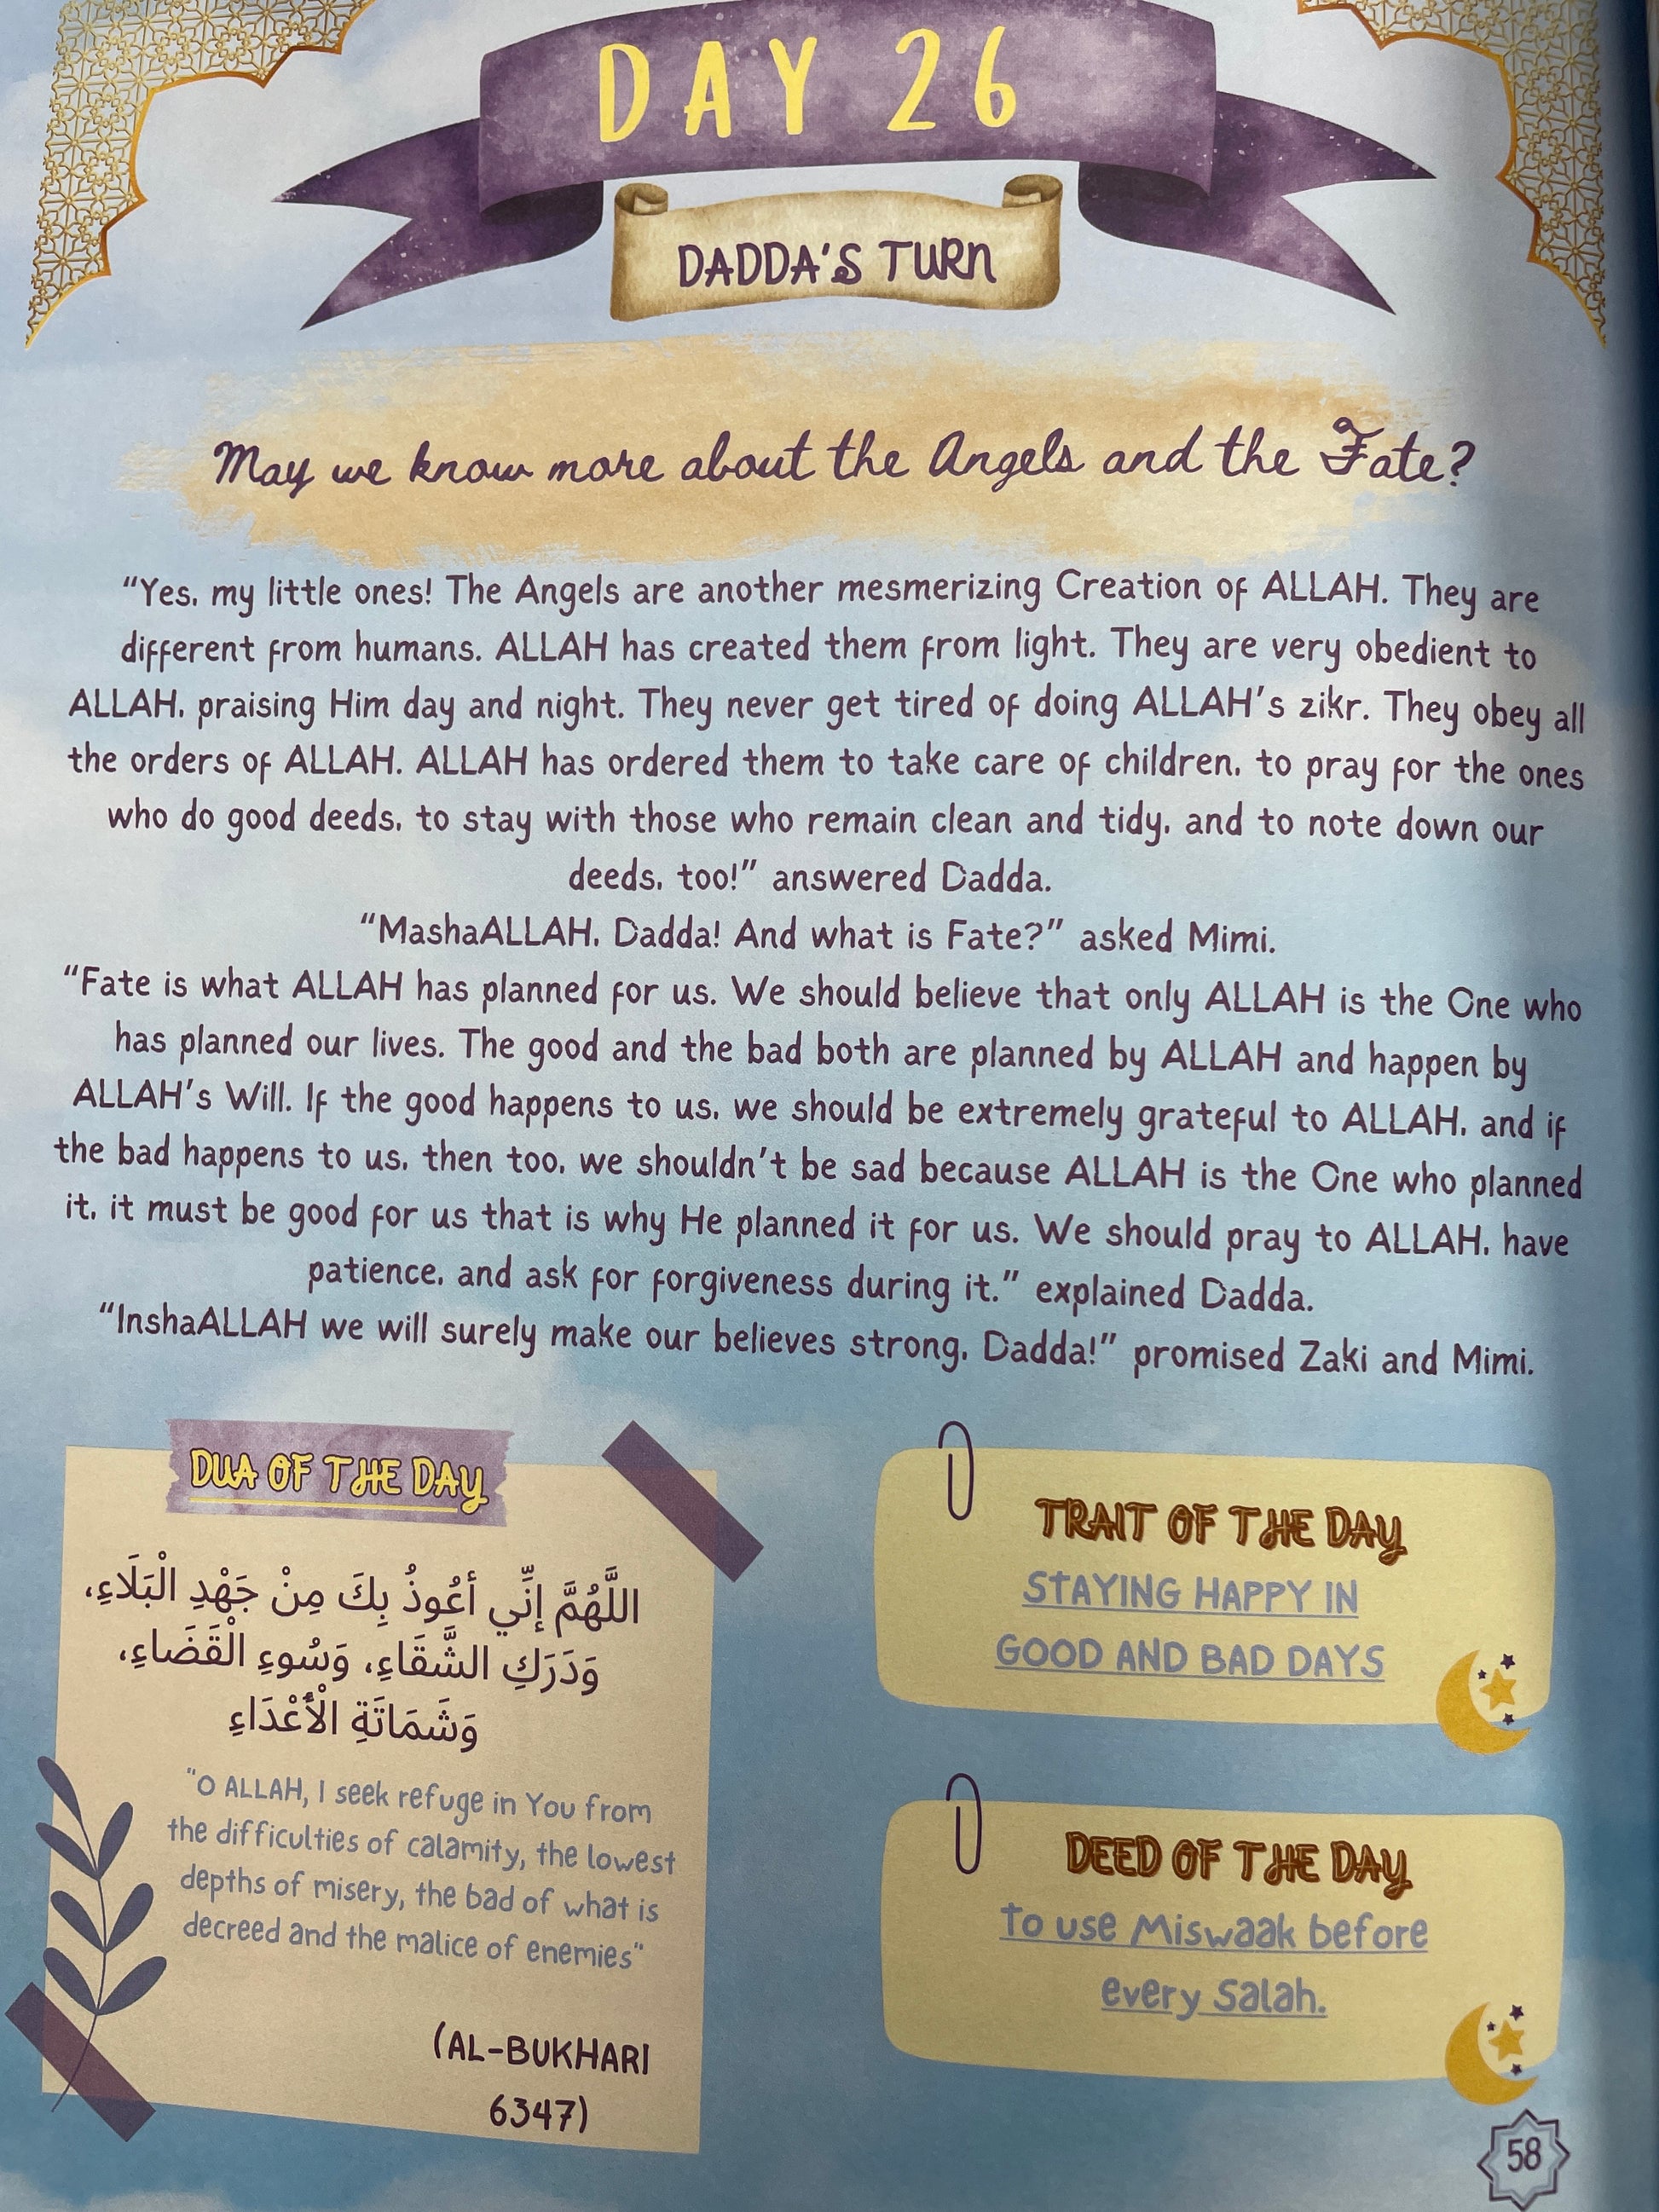 DAY 26
DADDA'S TURN
May we know more about the Angels and the Fate?
"Yes, my little ones! The Angels are another mesmerizing Creation of ALLAH. They are
different from humans. ALLAH has created them from light. They are very obedient to
ALLAH, praising Him day and night. They never get tired of doing ALLAH's zikr. They obey all
the orders of ALLAH. ALLAH has ordered them to take care of children, to pray for the ones
who do good deeds, to stay with those who remain clean and tidy, and to note down our
deeds, too!" answered Dadda.
"MashaALLAH, Dadda! And what is Fate?" asked Mimi.
"Fate is what ALLAH has planned for us. We should believe that only ALLAH is the One who
has planned our lives. The good and the bad both are planned by ALLAH and happen by
ALLAH's Will. If the good happens to us, we should be extremely grateful to ALLAH, and if
the bad happens to us, then too, we shouldn't be sad because ALLAH is the One who planned
it, it must be good for us that is why He planned it for us. We should pray to ALLAH, have
patience, and ask for forgiveness during it." explained Dadda.
"InshaALLAH we will surely make our believes strong, Dadda!" promised Zaki and Mimi.
DUA OF THE DAY
اللَّهُمَّ إِنِّي أَعُوذُ بِكَ مِنْ جَهْدِ الْبَلَاءِ،
وَدَرَكِ الشَّقَاءِ، وَسُوءِ الْقَضَاءِ،
وَشَمَاتَةِ الْأَعْدَاءِ
"O ALLAH, I seek refuge in You from
the difficulties of calamity, the lowest
depths of misery, the bad of what is
decreed and the malice of enemies"
(AL-BUKHARI
6347)
TRAIT OF THE DAY
STAYING HAPPY IN
GOOD AND BAD DAYS
DEED OF THE DAY
To use Miswaak before
every Salah.
58